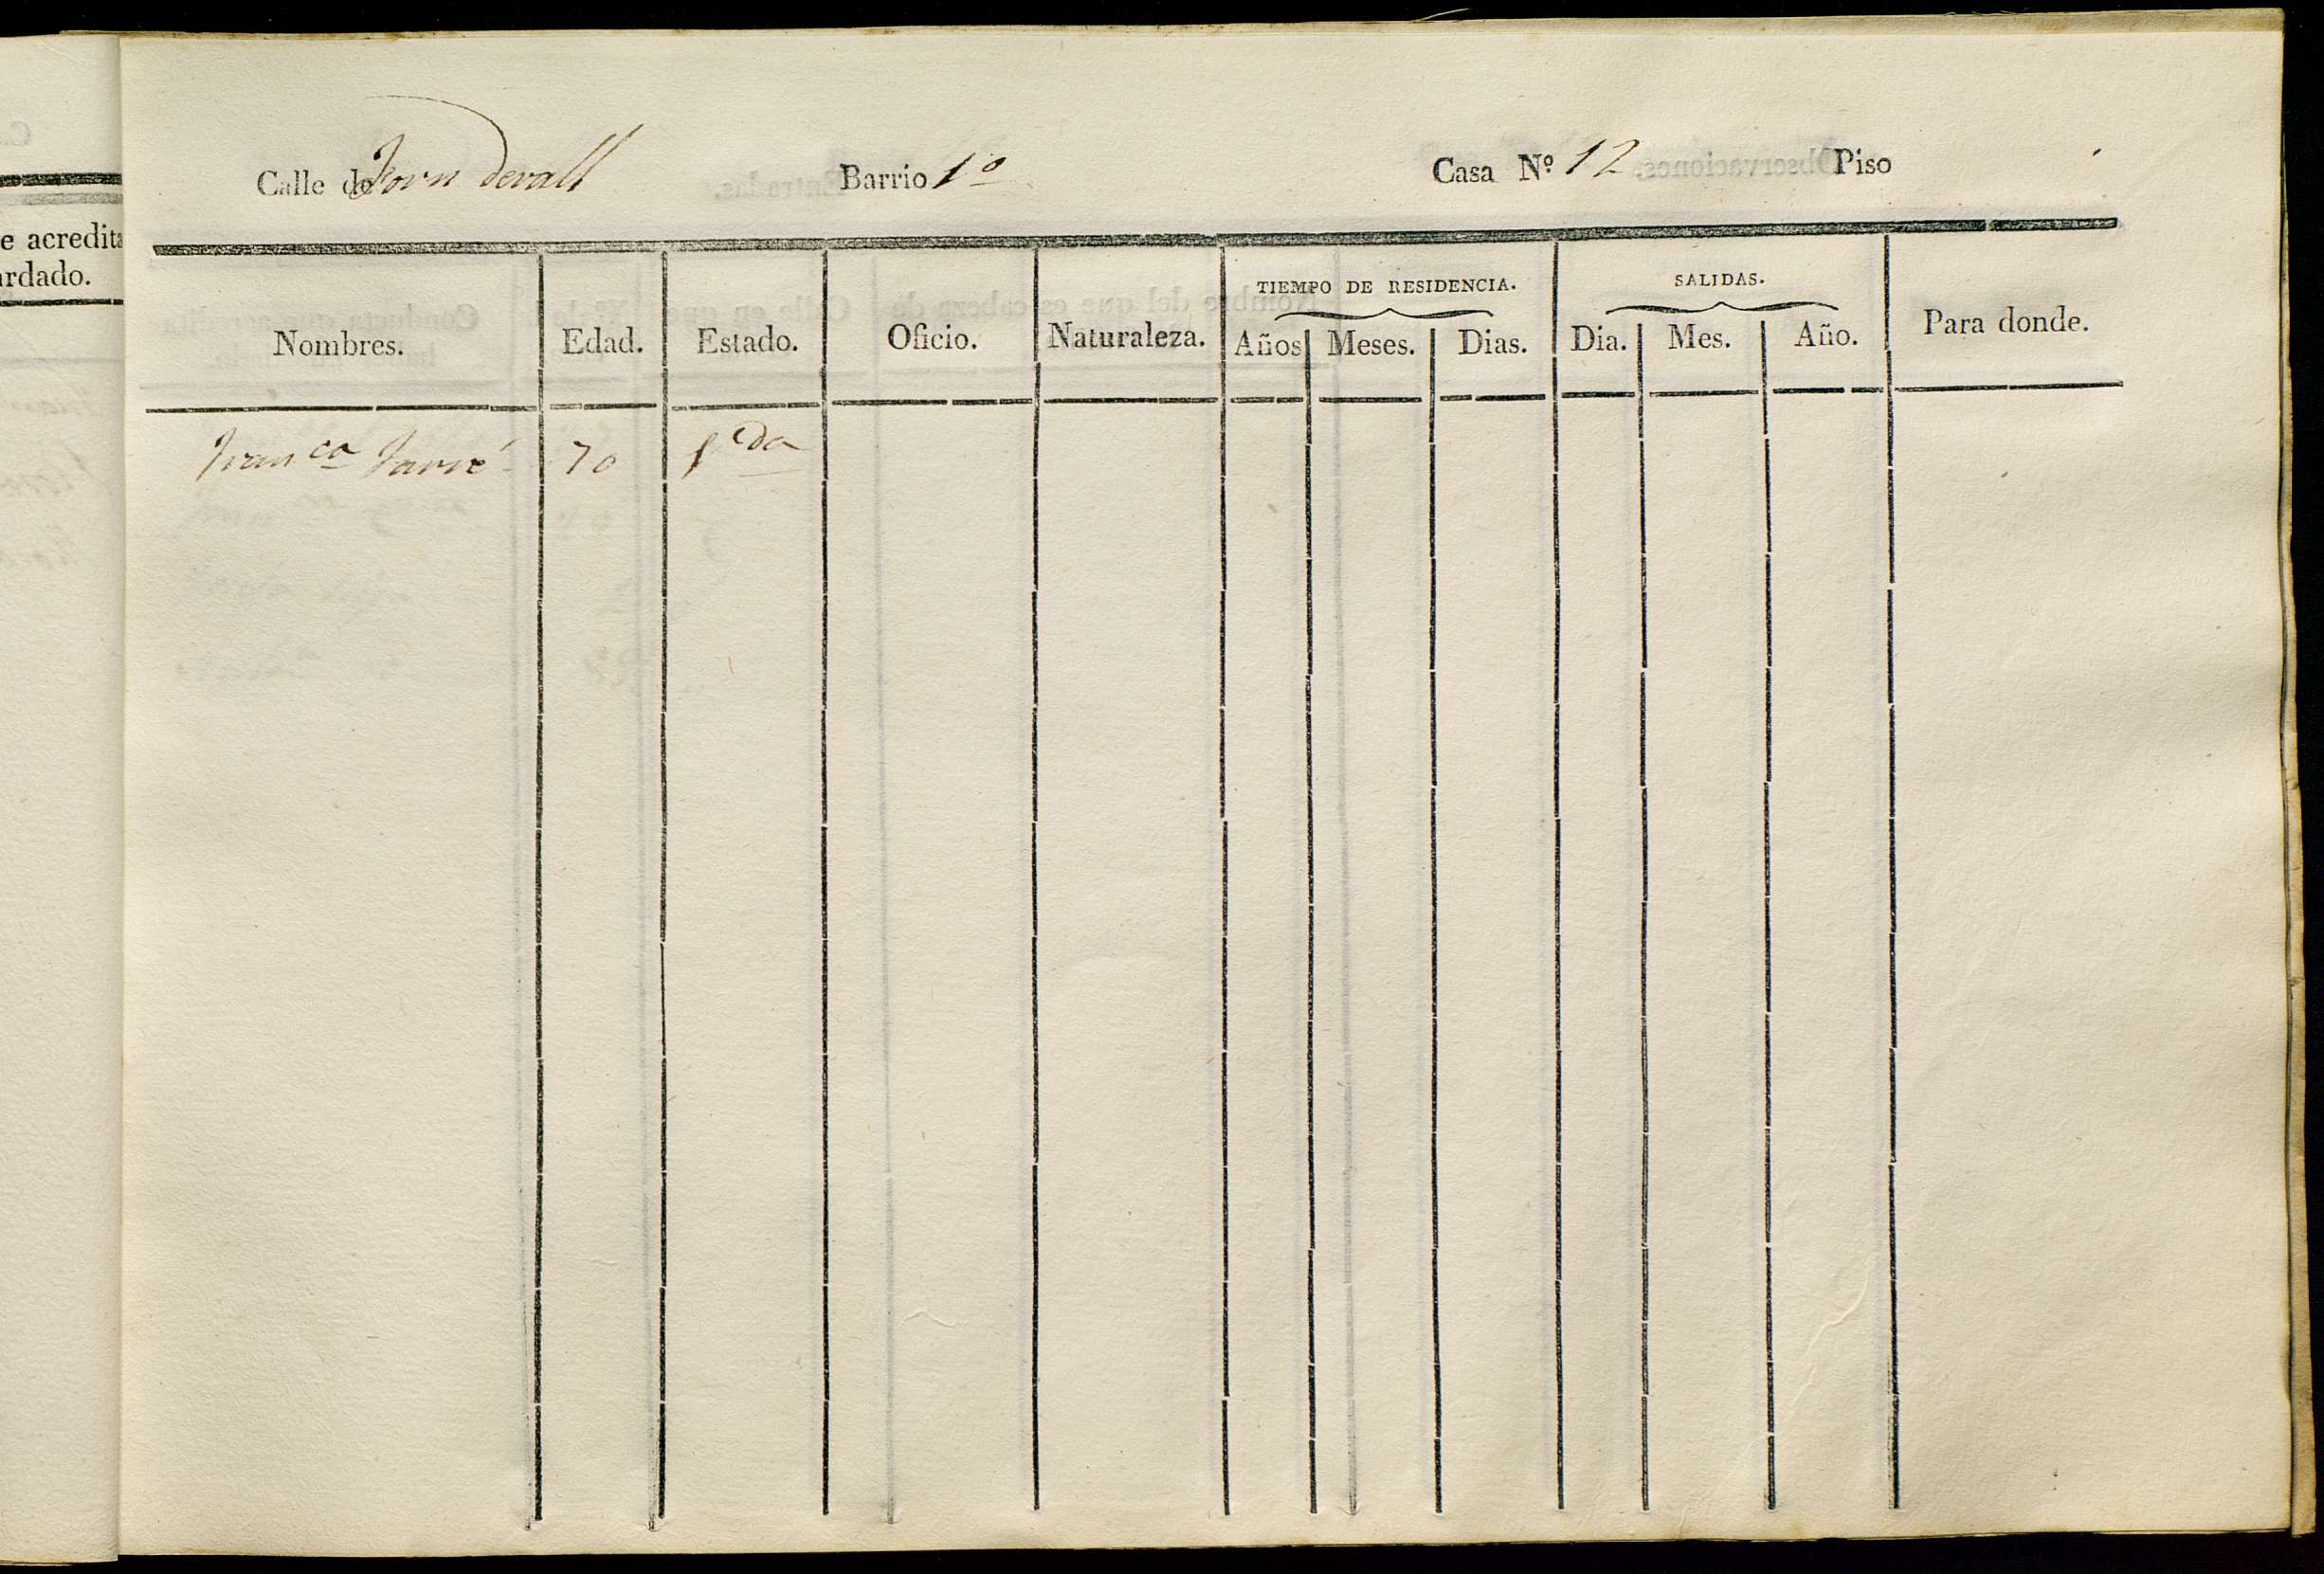 Calle de Forn devall Barrio 1º Casa Nº 12 Piso
e acredita
ardado.
TIEMPO DE RESIDENCIA. SALIDAS.
Nombres. Edad. Estado. Oficio. Naturaleza. Años Meses. Dias. Dia. Mes. Año. Para donde.
Fran.ca Farré 70